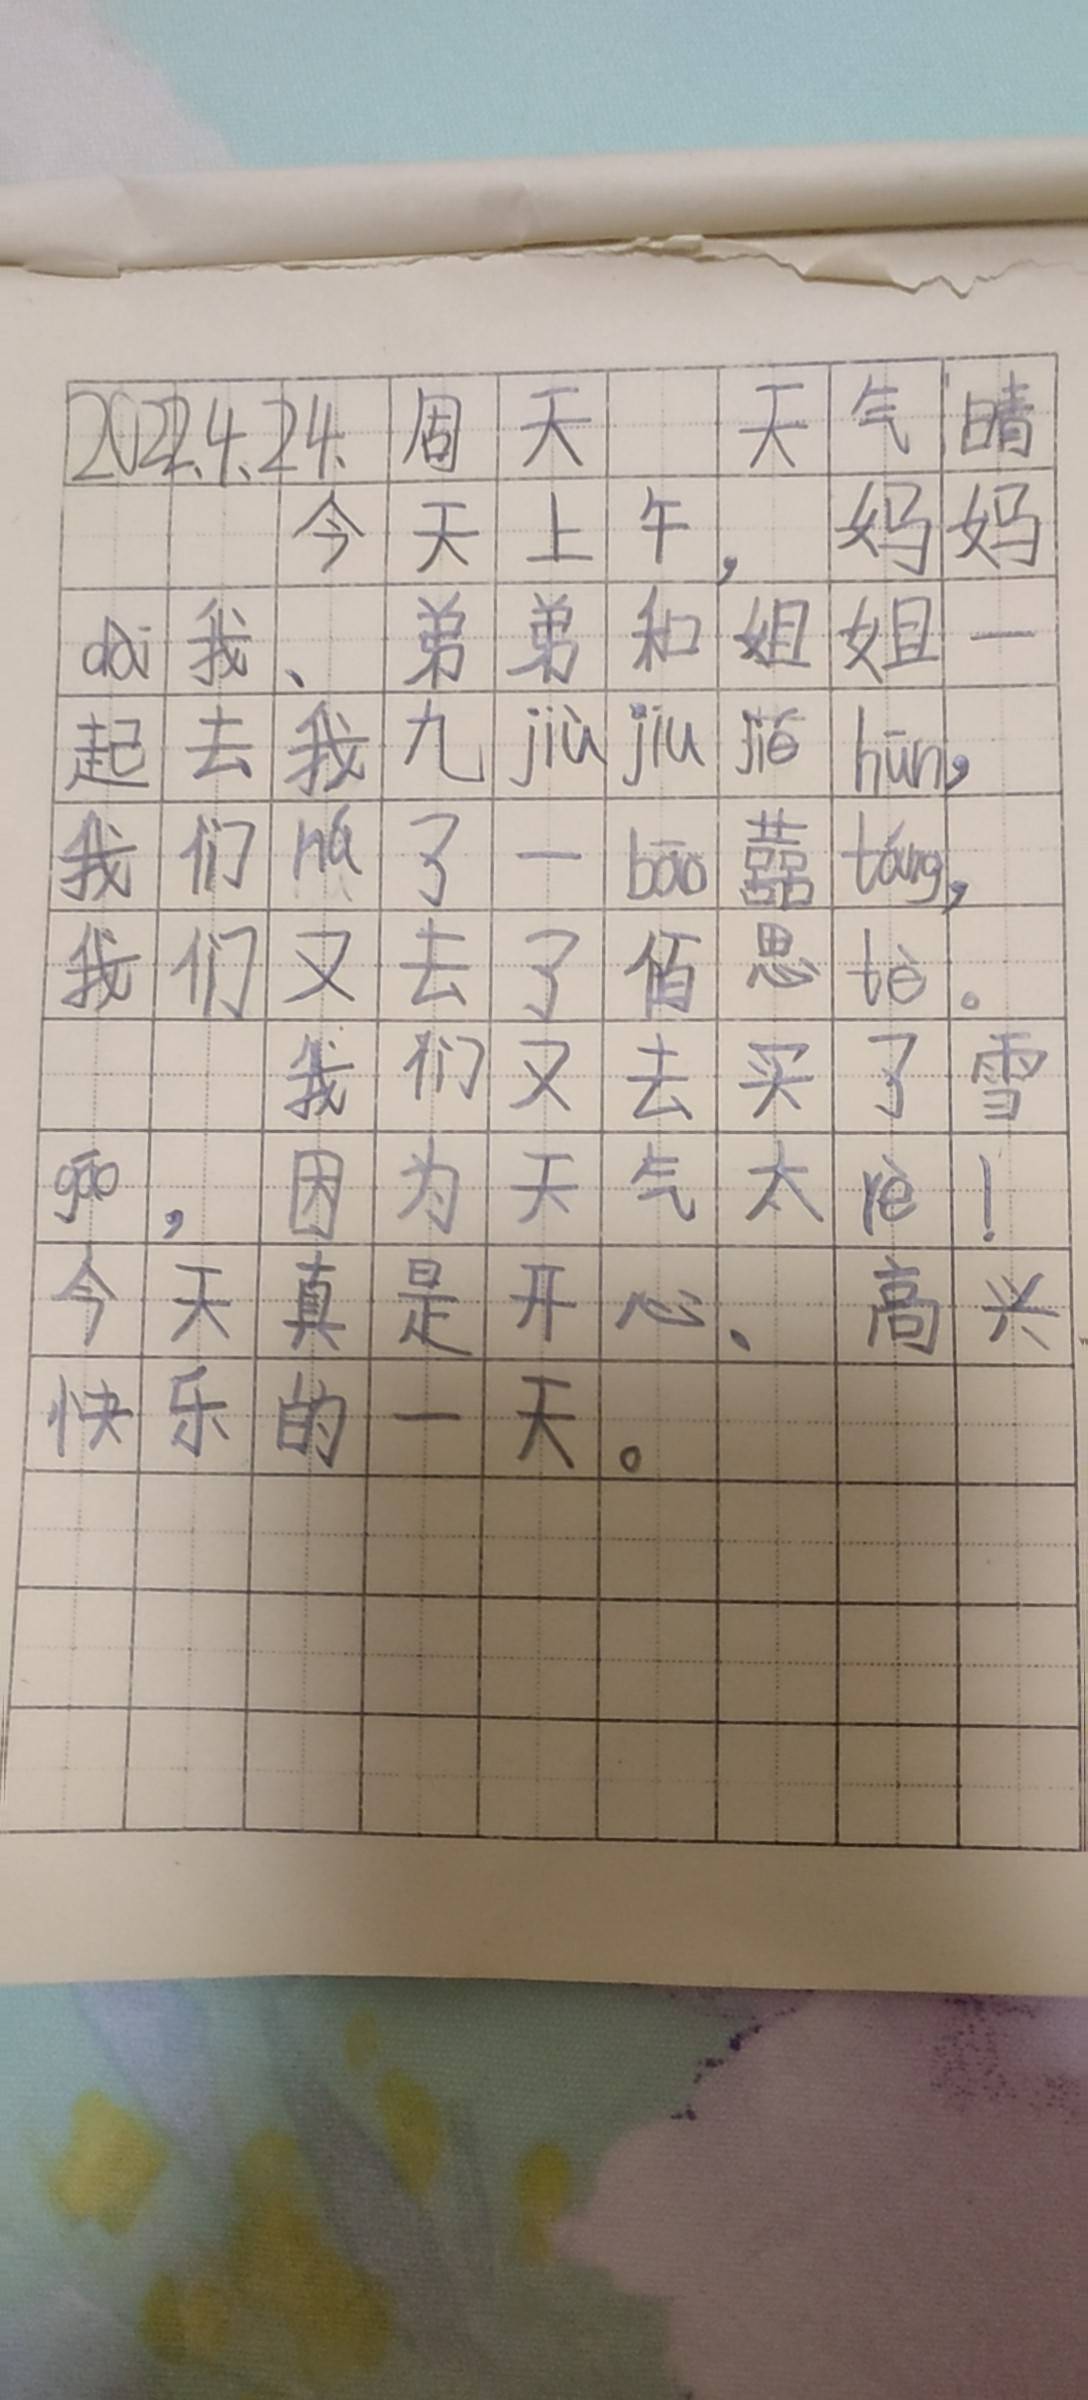 2022.4.24. 周天 天气晴
今天上午，妈妈
dài我、弟弟和姐姐一
起去我九jiùjiu jiéhūn，
我们ná了一bāo囍táng，
我们又去了佰思tè。
我们又去买了雪
gāo，因为天气太rè！
今天真是开心、高兴
快乐的一天。